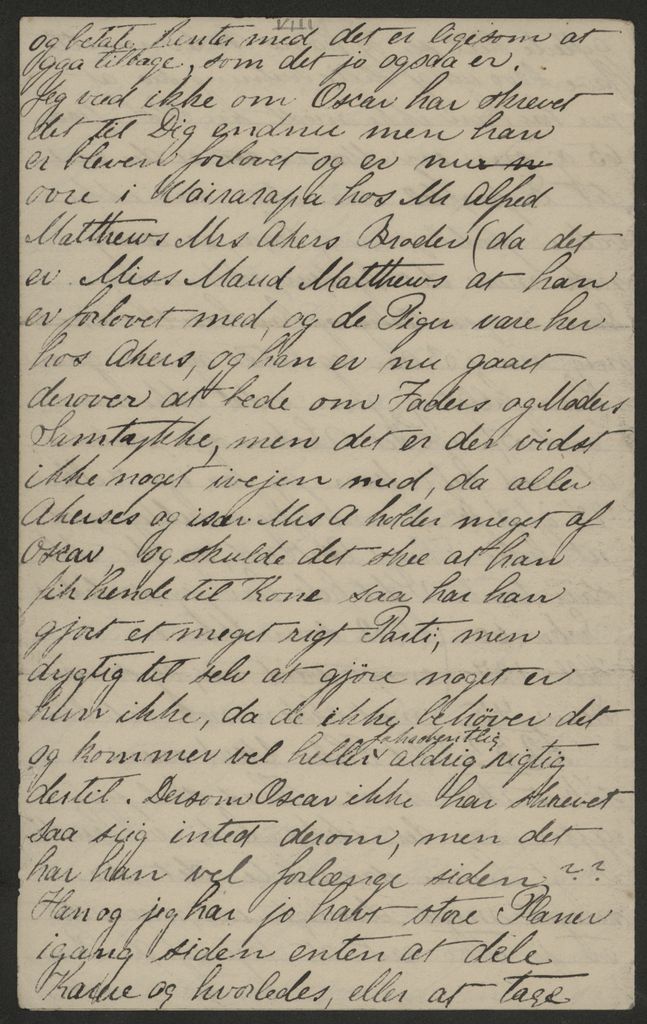 VIII
og betale Renter med det er ligesom at
gaa tilbage, som det jo ogsaa er.
Jeg veed ikke om Oscar har skrevet
det til Dig endnu men han
er bleven forlovet og er nu
ovre i Wairarapa hos Mr Alfred
Matthews Mrs Akers Broder (da det
er Miss Maud Matthews at han
er forlovet med, og de Piger vare her
hos Akers, og han er nu gaaet
derover at bede om Faders og Moders
Samtykke, men det er der vidst
ikke noget ivejen med, da alle
Akerses og især Mrs A holder meget af
Oscar, og skulde det skee at han
fik hende til Kone saa har han
gjort et meget rigt Parti, men
dygtig til selv at gjöre noget er
hun ikke, da de ikke behöver det
og kommer vel heller forhaabentlig aldrig rigtig
dertil. Dersom Oscar ikke har skrevet
saa siig intet derom, men det
har han vel forlænge siden ??
Han og jeg har jo havt store Planer
igang siden enten at dele
Kaiue og hvorledes, eller at tage